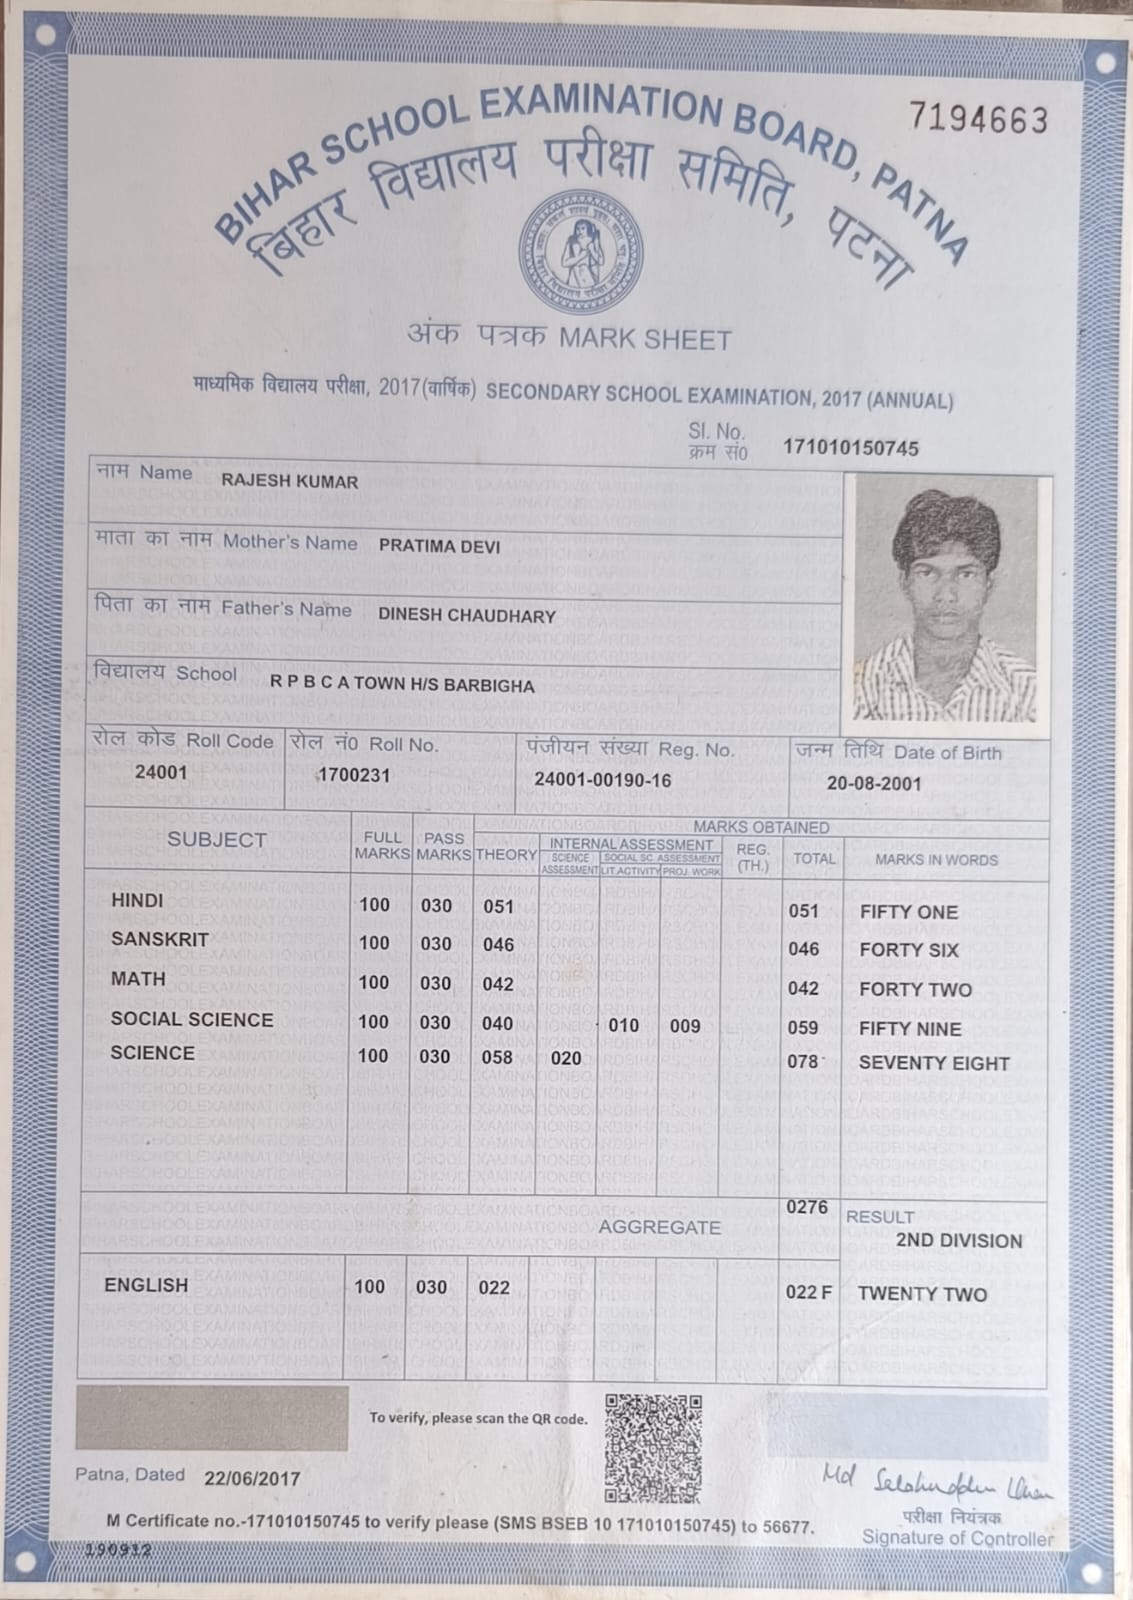 7194663
BIHAR SCHOOL EXAMINATION BOARD, PATNA
बिहार विद्यालय परीक्षा समिति, पटना
अंक पत्रक MARK SHEET
माध्यमिक विद्यालय परीक्षा, 2017(वार्षिक) SECONDARY SCHOOL EXAMINATION, 2017 (ANNUAL)
Sl. No.
क्रम सं0 171010150745
नाम Name RAJESH KUMAR
माता का नाम Mother's Name PRATIMA DEVI
पिता का नाम Father's Name DINESH CHAUDHARY
विद्यालय School R P B C A TOWN H/S BARBIGHA
रोल कोड Roll Code रोल नं0 Roll No. पंजीयन संख्या Reg. No. जन्म तिथि Date of Birth
24001 1700231 24001-00190-16 20-08-2001
MARKS OBTAINED
SUBJECT FULL MARKS PASS MARKS THEORY INTERNAL ASSESSMENT REG. (TH.) TOTAL MARKS IN WORDS
SCIENCE ASSESSMENT SOCIAL SC. ASSESSMENT
LIT.ACTIVITY PROJ. WORK
HINDI 100 030 051 051 FIFTY ONE
SANSKRIT 100 030 046 046 FORTY SIX
MATH 100 030 042 042 FORTY TWO
SOCIAL SCIENCE 100 030 040 010 009 059 FIFTY NINE
SCIENCE 100 030 058 020 078 SEVENTY EIGHT
AGGREGATE 0276 RESULT
2ND DIVISION
ENGLISH 100 030 022 022 F TWENTY TWO
To verify, please scan the QR code.
Patna, Dated 22/06/2017
Md
परीक्षा नियंत्रक
M Certificate no.-171010150745 to verify please (SMS BSEB 10 171010150745) to 56677.
Signature of Controller
190912